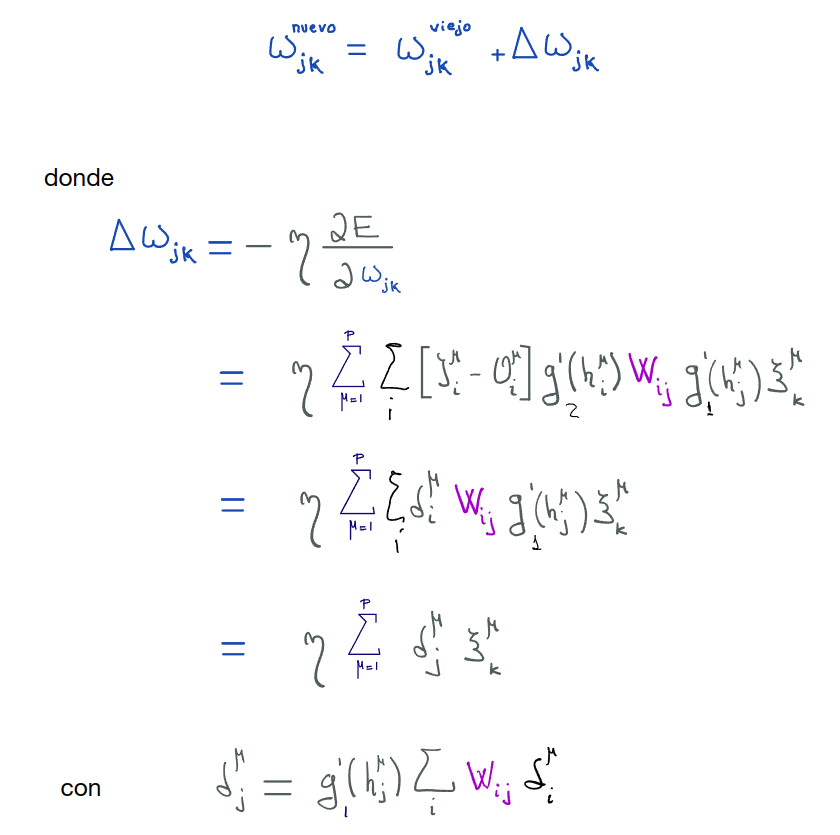 ω_{jk}^{nuevo} = ω_{jk}^{viejo} + Δω_{jk}
donde
Δω_{jk} = − η ∂E / ∂ω_{jk}
= η Σ_{μ=1}^{p} Σ_i [ζ_i^μ − O_i^μ] g'_2(h_i^μ) W_{ij} g'_1(h_j^μ) ξ_k^μ
= η Σ_{μ=1}^{p} Σ_i δ_i^μ W_{ij} g'_1(h_j^μ) ξ_k^μ
= η Σ_{μ=1}^{p} δ_j^μ ξ_k^μ
con δ_j^μ = g'_1(h_j^μ) Σ_i W_{ij} δ_i^μ